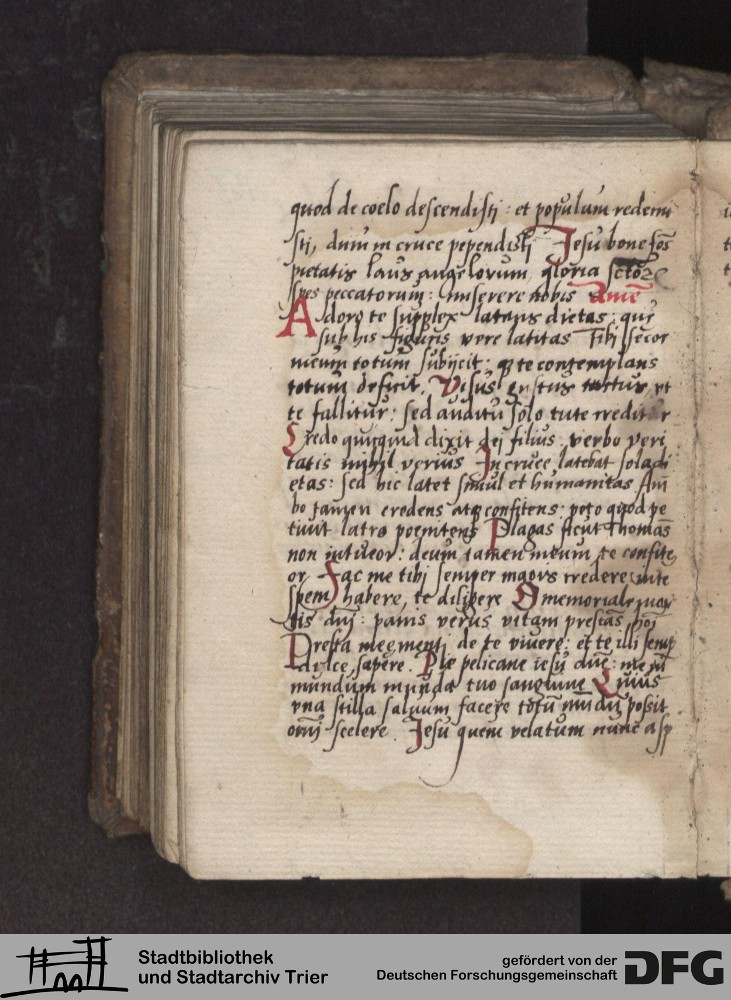 quod de coelo descendisti : et populum redemi
sti, dum in cruce pependisti Jesu bone fōs
pietatis laus angelorum gloria sctō⁊
spes peccatorum : miserere nobis Amē
Adoro te supplex latens dietas : que
sub his figuris vere latitas Tibi se cor
meum totum subijcit : q te contemplans
totum deficit. Visus gustus tactus et
te fallitur : sed auditu solo tute creditur
Credo quicquid dixit dei filius : verbo veri
tatis nihil verius In cruce latebat sola di
etas : sed hic latet simul et humanitas Am
bo tamen credens atq confitens : peto quod pe
tivit latro poenitens Plagas sicut Thomas
non intueor : deum tamen meum te confite
or Fac me tibi semper magis credere : in te
spem habere, te diligere O memoriale mor
tis dni : panis verus vitam prestās
Presta mee menti de te vivere : et te illi semp
dulce sapere. Pie pelicane iesu dne : me im
mundum munda tuo sanguine Cuius
vna stilla saluum facere totū mūdū possit
omni scelere. Jesu quem velatum nunc asp
Stadtbibliothek
und Stadtarchiv Trier
gefördert von der
Deutschen Forschungsgemeinschaft
DFG